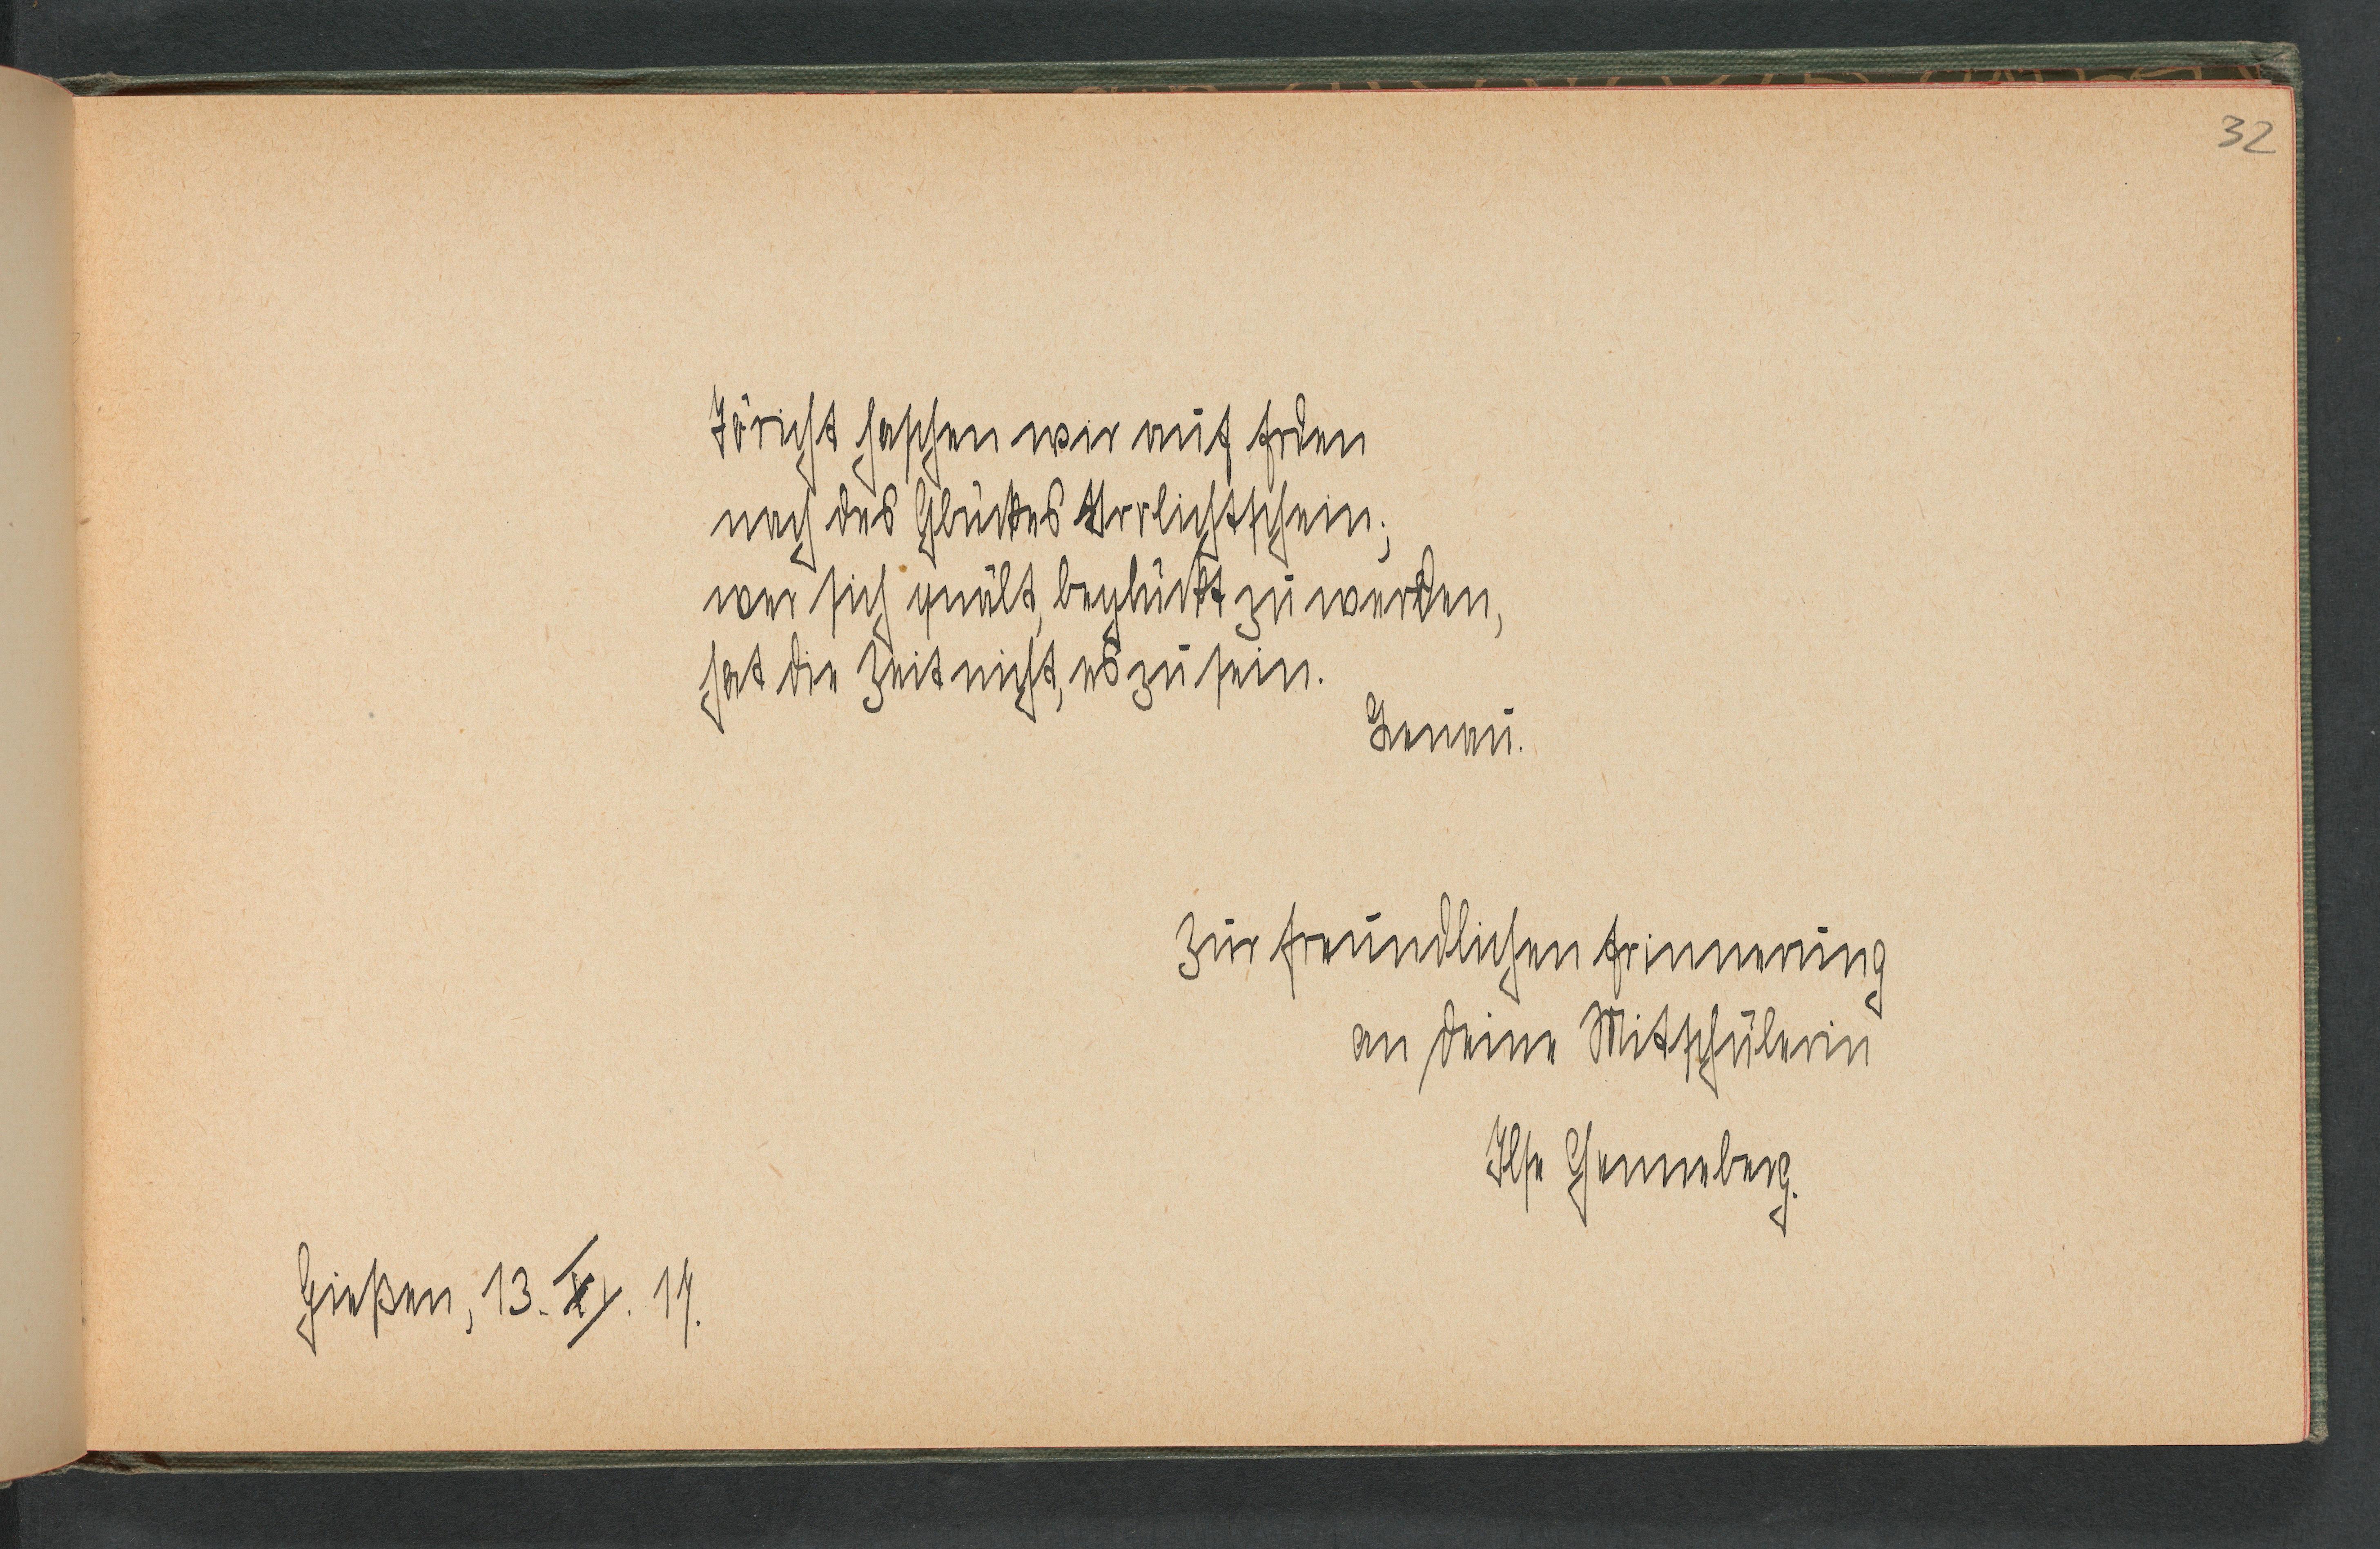 32
Töricht haschen wir auf Erden
nach des Glückes Irrlichtschein;
wer sich quält, beglückt zu werden,
hat die Zeit nicht, es zu sein.
Lenau.
Zur freundlichen Erinnerung
an deine Mitschülerin
Ilse Henneberg.
Gießen, 13. XI. 19.